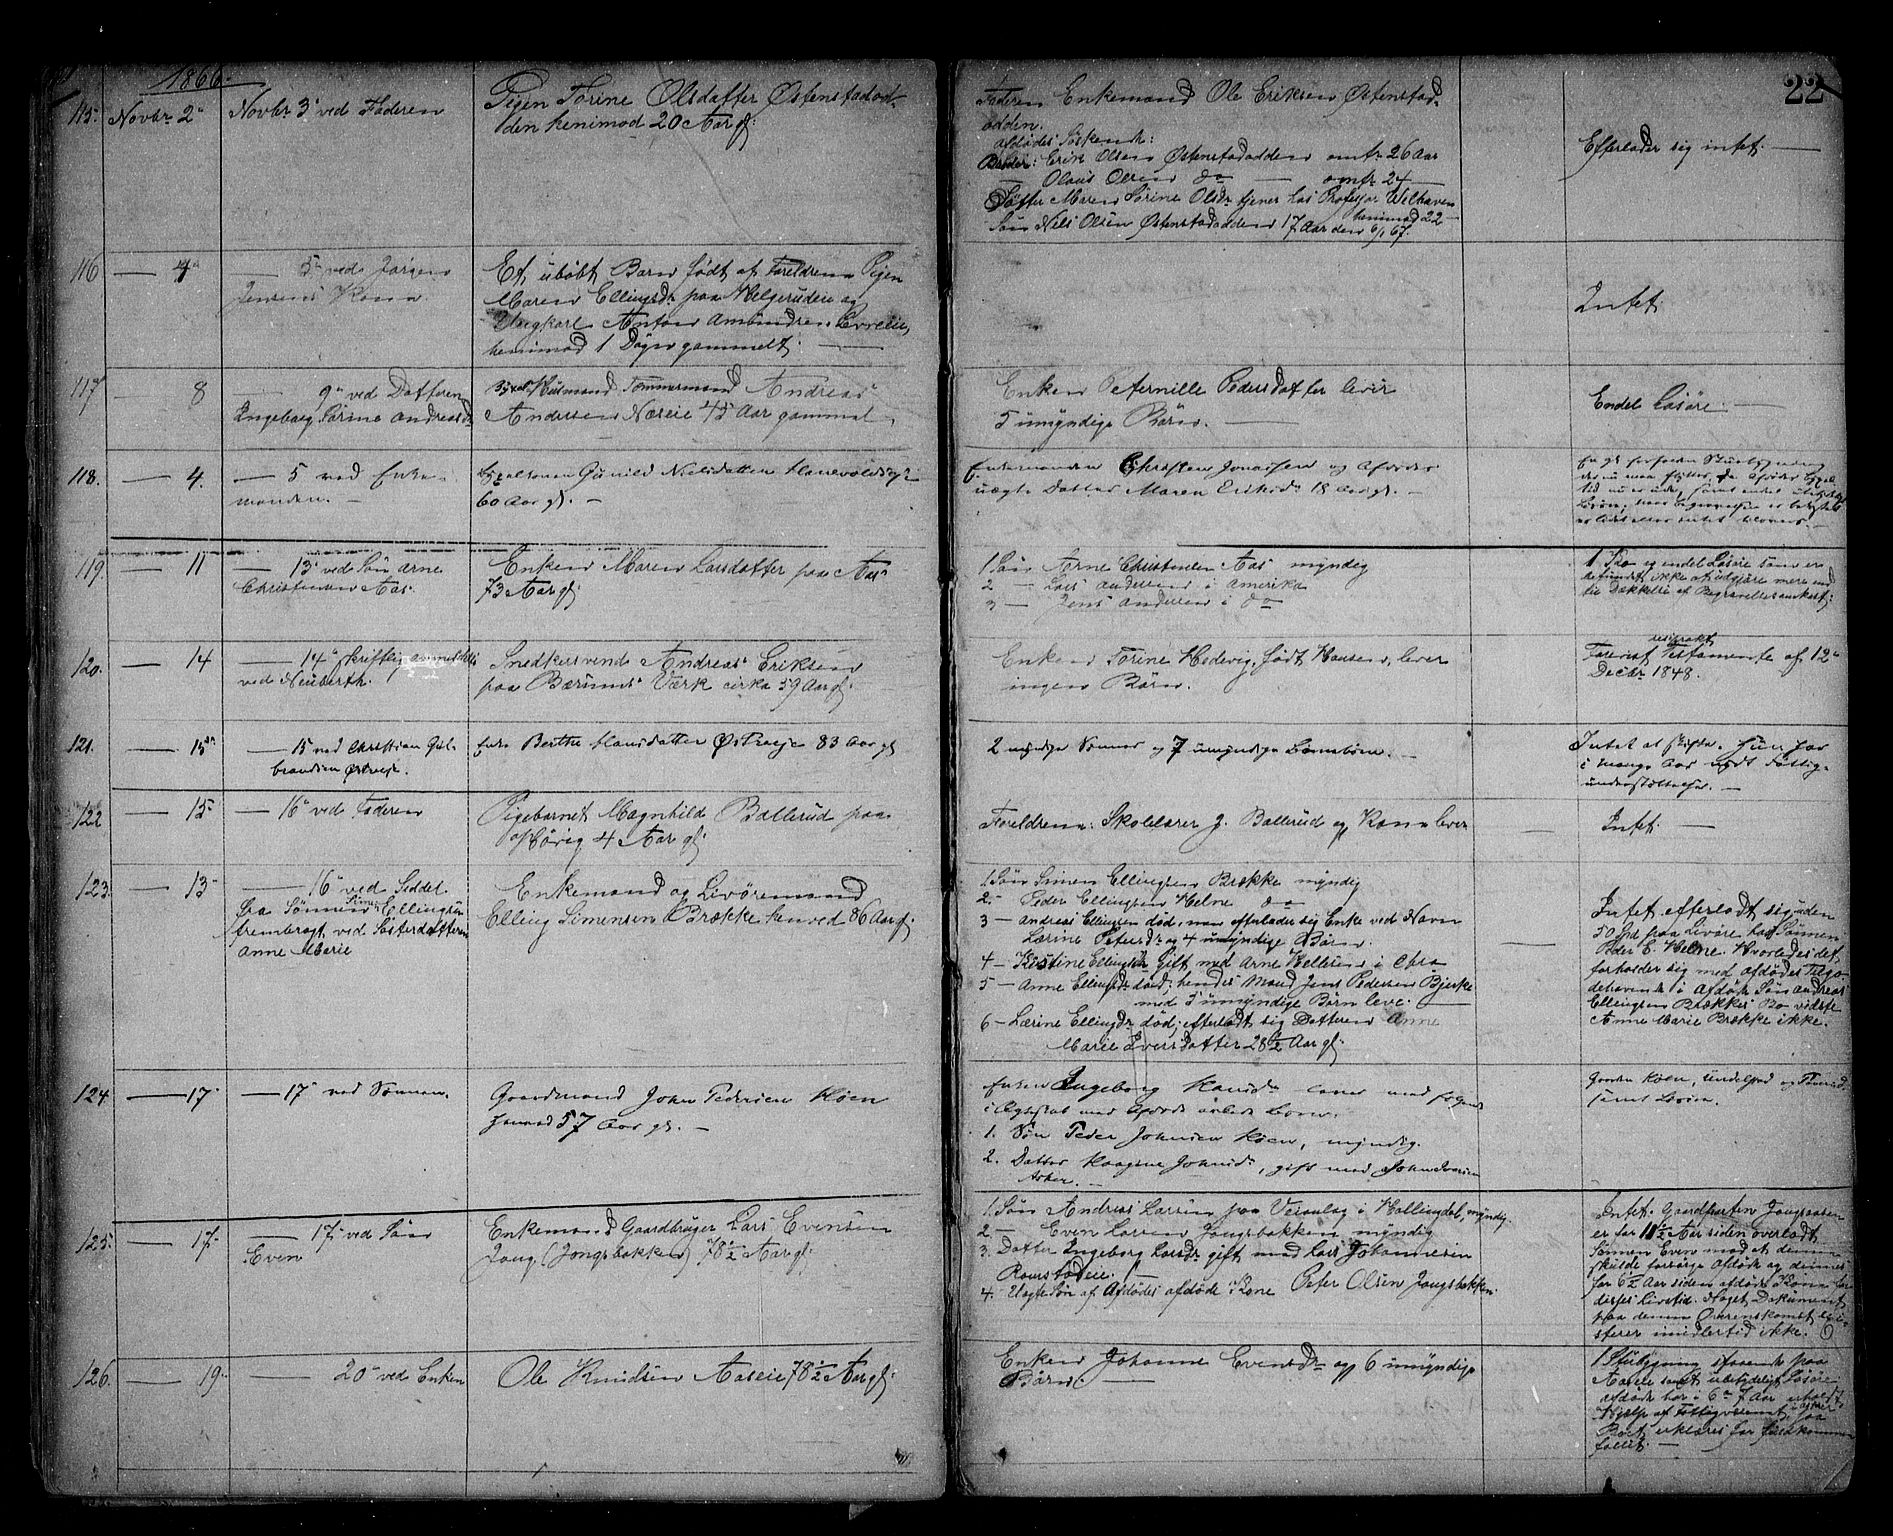 22
1866.
115. Novbr 2 Novbr 3 ved Faderen
Pigen Torine Olsdatter Østenstadod-
den henimod 20 Aar gl.
Faderen Enkemand Ole Eriksen Østenstad-
odden.
afdødes Søskende:
Brødre: Erik Olsen Østenstadodden omtr 26 Aar
— Olaus Olsen do — omtr 24 —
Søster Maren Sørine Olsdr tjener hos Professor Welhaven
henimod 22 —
Nils Olsen Østenstadodden 17 Aar den 6/1 67.
Efterlader sig intet. —
116 — 4 — 5 ved Jørgen
Jensens Kone
Et udøbt Barn født af Foreldrene Pigen
Maren Ellingsdr paa Helgerudeie og
Ungkarl Anton Amundsen
henimod 1 Døgn gammelt. —
Intet.
117 — 8 — 9 ved Datteren
Ingeborg Sørine Andreasdr
Husmand Tømmermand Andreas
Andersen Næseie 45 Aar gammel.
Enken Peternille Pedersdatter lever
5 umyndige Børn. —
Endel Løsøre. —
118. — 4. — 5 ved Enke-
manden. —
Gunild Nielsdatter
60 Aar gl. —
Enkemanden Christen Jonassen og Afdødes
uægte Datter Maren Eriksdr 18 Aar gl. —
119. — 11 — 13 ved Søn Arne
Christensen Aas.
Enken Maren Larsdatter paa Aas
73 Aar gl.
1 Søn Arne Christensen Aas myndig
2 — Lars Andersen i Amerika
3 — Jens Andersen i do
1 Ko og endel Løsøre som er
befundet ikke at udgjøre mere end
til Dækkelse af Begravelsesomkost.
120. — 14 — 14 skriftlig anmeldelse
ved Neuberth.
Snedkersvend Andreas Eriksen
paa Bærums Værk cirka 59 Aar gl.
Enken Torine Hedevig født Hansen, lever
ingen Børn.
Forevist Testamente af 12
Decbr 1848.
121. — 15 — 15 ved Christian Gul-
brandsen Østveje.
Enke Berthe Hansdatter Østveje 83 Aar gl
2 myndige Sønner og 7 umyndige Børnebørn. —
Intet at skifte. Hun har
i mange Aar nydt Fattig-
understøttelse. —
122 — 15 — 16 ved Faderen
Pigebarnet Magnhild Ballerud paa
Høvig 4 Aar gl.
Foreldrene: Skolelærer J. Ballerud og Kone lever —
Intet. —
123. — 13 — 16 ved Seddel
fra Sønnen Simen Ellingsen
frembragt ved Søsterdatteren
Anne Marie
Enkemand og Livøremand
Elling Simensen Brække henved 86 Aar gl.
1. Søn Simen Ellingsen Brække myndig
2. — Peder Ellingsen Helne do
3 — Andreas Ellingsen død, men efterlader sig Enke ved Navn
Lærine Petersdr og 4 umyndige Børn.
4 — Kistine Ellingsdr Gift med Arne Hellerud i Chra
5 — Anne Ellingsdr død; hendes Mand Jens Pedersen Bjerke
med 5 umyndige Børn leve. —
6 — Lærine Ellingsdr død; efterlodt sig Datteren Anne
Marie Iversdatter 28 1/2 Aar gl.
—
Intet efterlodt sig uden
50 Spd paa Livøre hos Sønnen
Peder E. Helne. Hvorledes det
forholder sig med afdødes Tilgo-
dehavende i Afdøde Søn Andreas
Ellingsen Brækkes Bo vidste
Anne Marie Brække ikke.
124. — 17 — 17 ved Sønnen.
Gaardmand John Pedersen Høen
henved 57 Aar gl. —
Enken Ingeborg Hansdr lever med følgende
i Ægteskab med Afdøde avlede Børn.
1. Søn Peder Johnsen Høen, myndig.
2. Datter Johnsdr, gift med John Iversen
Asker. —
125. — 17 — 17 ved Søn
Even
Enkemand Gaardbruger Lars Evensen
Jong (Jongsbakken) 78 1/2 Aar gl.
1. Søn Andreas Larsen paa i Hallingdal, myndig.
2 — Even Larsen Jongsbakken myndig
3. Datter Ingeborg Larsdr gift med Lars Johannesen
Ramstadeie. —
4. Uægte Søn af Afdødes afdøde Kone Peter Olsen Jongsbakken.
Intet. Gaardparten Jongsaasen
er for 11 1/2 Aar siden overlodt
Sønnen Even mod at denne
skulde forsørge Afdøde og dennes
for 6 1/2 Aar siden afdøde Kone for
deres Livstid. Noget Dokument
paa denne Overenskomst exi-
sterer imidlertid ikke.
126. — 19. — 20 ved Enken
Ole Knudsen Aaseie 78 1/2 Aar gl.
Enken Johanne Evensdr og 6 umyndige
Børn. —
1 Stubygning staaende paa
Aaseie samt ubetydeligt Løsøre
afdøde har i 6 a 7 Aar erholdt
Hjælp af Fattigvæsenet,
Boet erklæres for
fallit. —